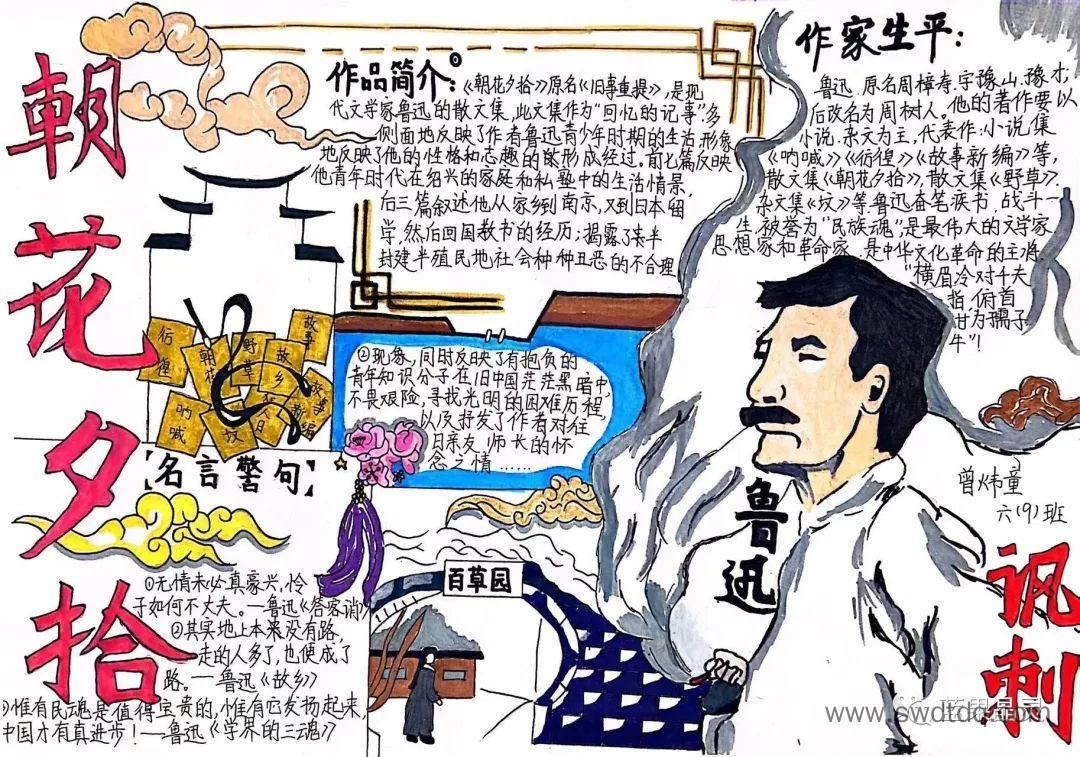 朝花夕拾
作品简介：
①
《朝花夕拾》原名《旧事重提》，是现
代文学家鲁迅的散文集，此文集作为“回忆的记事”多
侧面地反映了作者鲁迅青少年时期的生活，形象
地反映了他的性格和志趣的的形成经过。前七篇反映
他青年时代在绍兴的家庭和私塾中的生活情景，
后三篇叙述他从家乡到南京，又到日本留
学，然后回国教书的经历；揭露了半
封建半殖民地社会种种丑恶的不合理
②现象，同时反映了有抱负的
青年知识分子在旧中国茫茫黑暗中，
不畏艰险，寻找光明的困难历程，
以及抒发了作者对往
日亲友、师长的怀
念之情……
作家生平：
鲁迅，原名周樟寿，字豫山、豫才，
后改名为周树人。他的著作要以
小说、杂文为主，代表作：小说集
《呐喊》《彷徨》《故事新编》等，
散文集《朝花夕拾》，散文集《野草》，
杂文集《坟》等。鲁迅奋笔疾书，战斗一
生，被誉为“民族魂”，是最伟大的文学家
思想家和革命家，是中华文化革命的主将
“横眉冷对千夫
指，俯首
甘为孺子
牛”！
彷徨
朝花
野草
故乡
故事
呐喊
坟
【名言警句】
①无情未必真豪兴，怜
子如何不丈夫。—鲁迅《答客诮》
②其实地上本来没有路，
走的人多了，也便成了
路。—鲁迅《故乡》
惟有民魂是值得宝贵的，惟有它发扬起来，
中国才有真进步！—鲁迅《学界的三魂》
百草园
鲁迅
曾炜童
六(9)班
讽刺
www.swdtdc.com